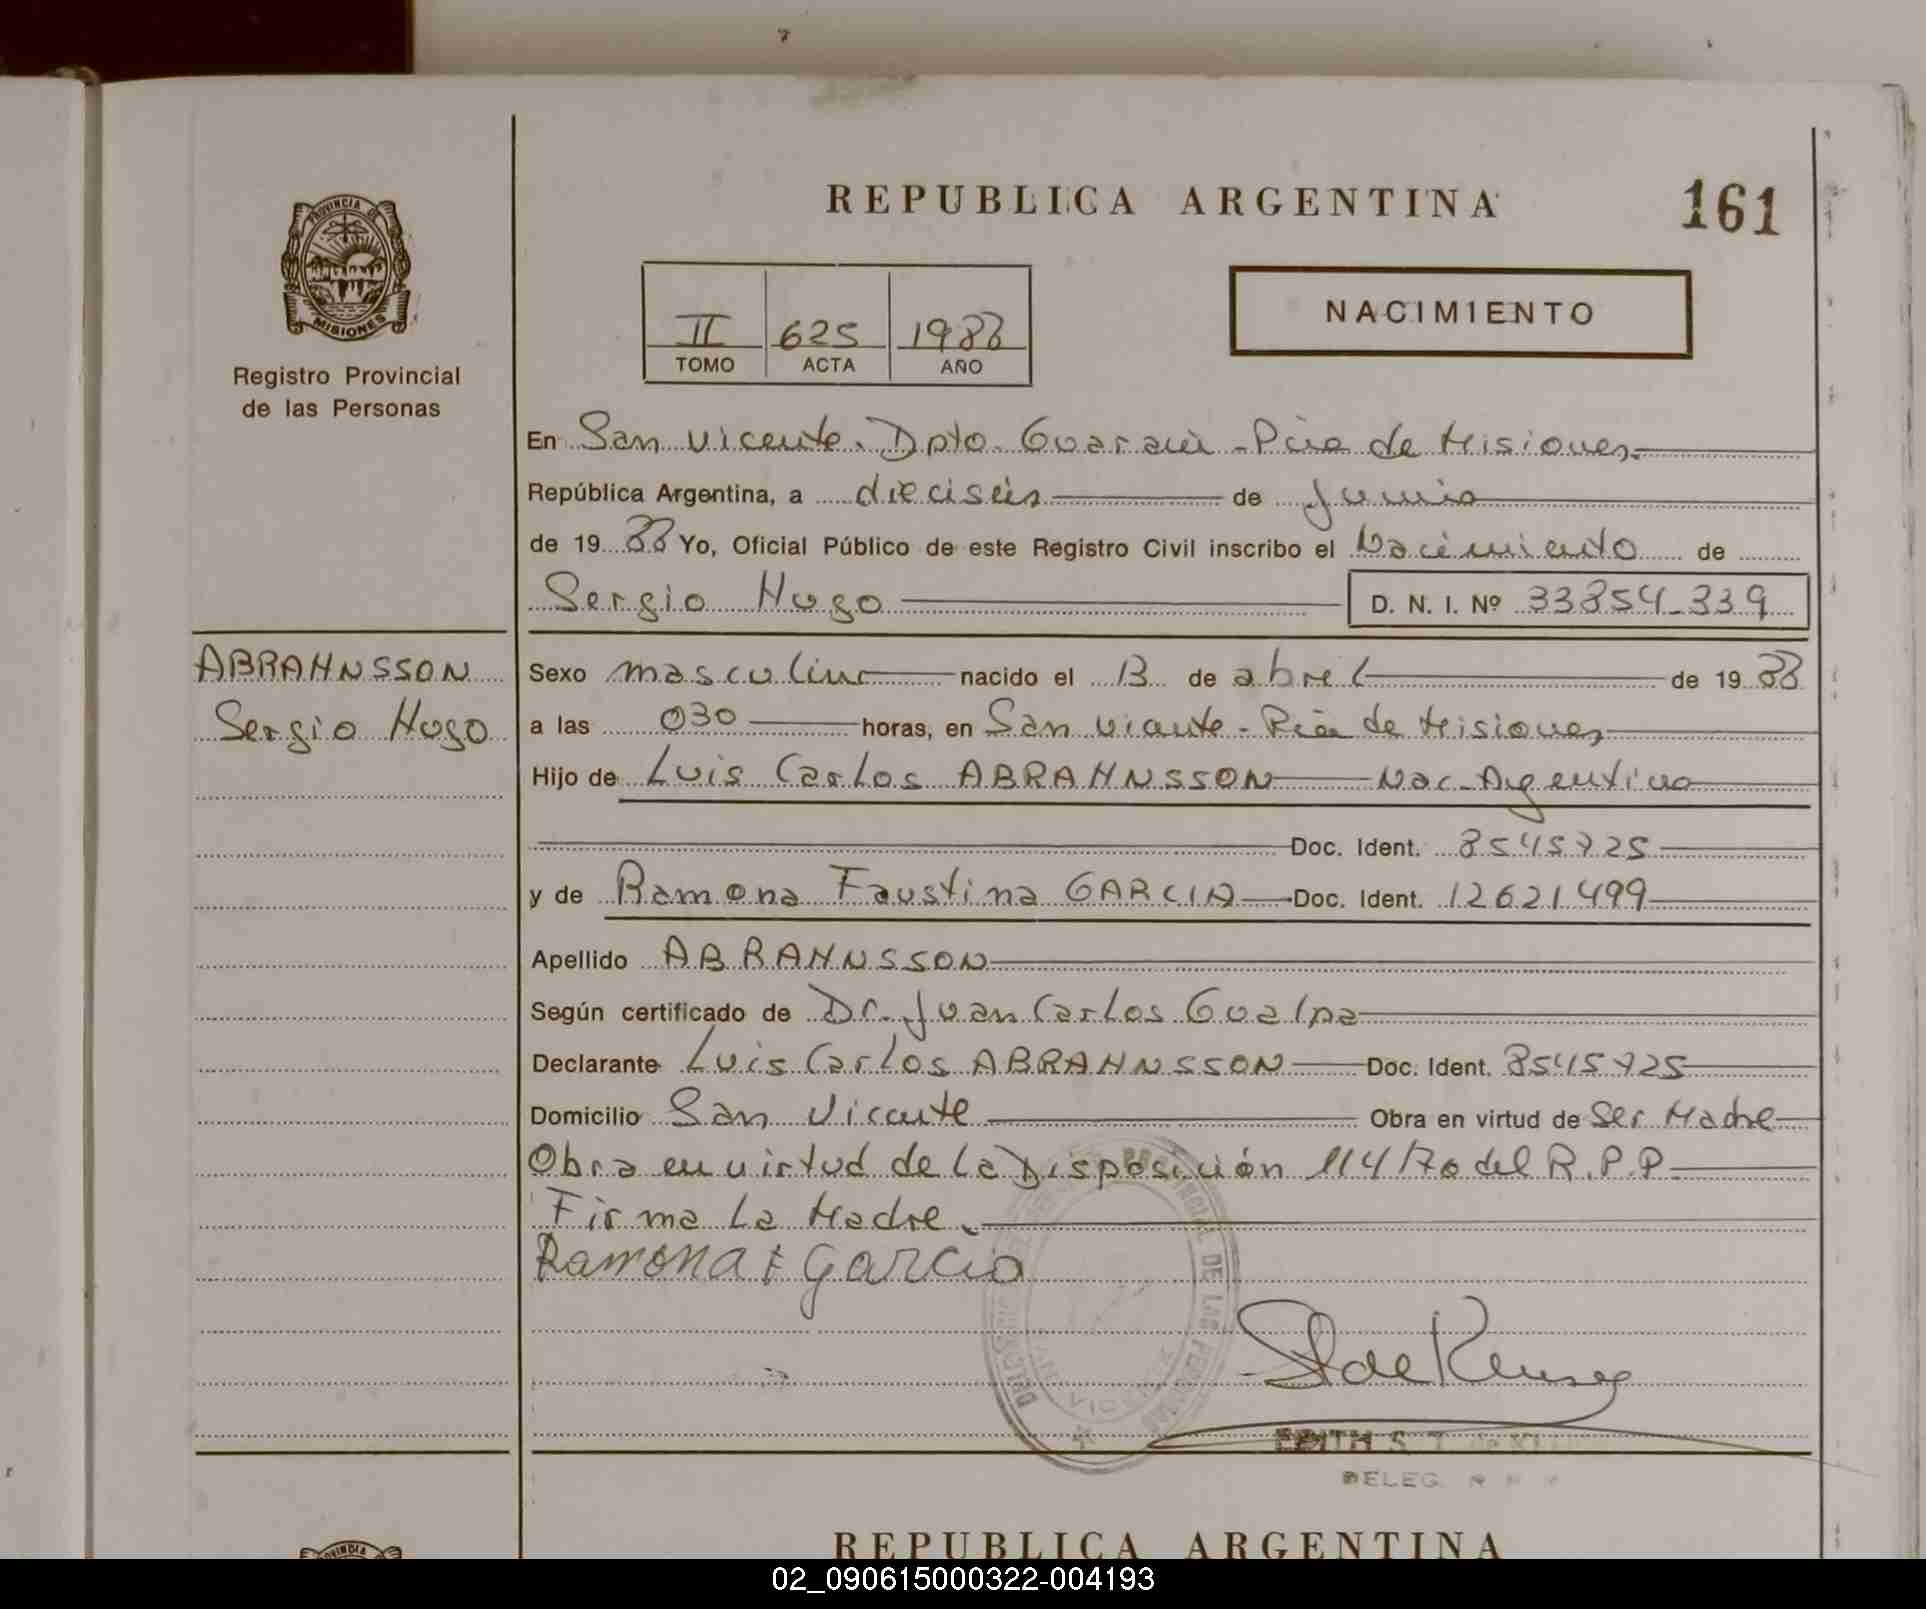 REPUBLICA ARGENTINA
161
PROVINCIA DE
MISIONES
Registro Provincial
de las Personas
II 625 1988
TOMO ACTA AÑO
NACIMIENTO
En San Vicente. Dpto. Guaraní - Pcia de Misiones.
República Argentina, a dieciséis de Junio
de 1988 Yo, Oficial Público de este Registro Civil inscribo el Nacimiento de
Sergio Hugo D. N. I. Nº 33854-339
ABRAHNSSON
Sergio Hugo
Sexo masculino nacido el 13 de abril de 1988
a las 030 horas, en San Vicente - Pcia de Misiones
Hijo de Luis Carlos ABRAHNSSON Nac. Argentino
Doc. Ident. 8545725
y de Ramona Faustina GARCIA Doc. Ident. 12621499
Apellido ABRAHNSSON
Según certificado de Dr. Juan Carlos Gualpa
Declarante Luis Carlos ABRAHNSSON Doc. Ident. 8545725
Domicilio San Vicente Obra en virtud de Ser Madre
Obra en virtud de la Disposición 114/70 del R.P.P.
Firma La Madre.
Ramona F Garcia
EDITH S. T. de
DELEG.
PROVINDIA
REPUBLICA ARGENTINA
02_090615000322-004193